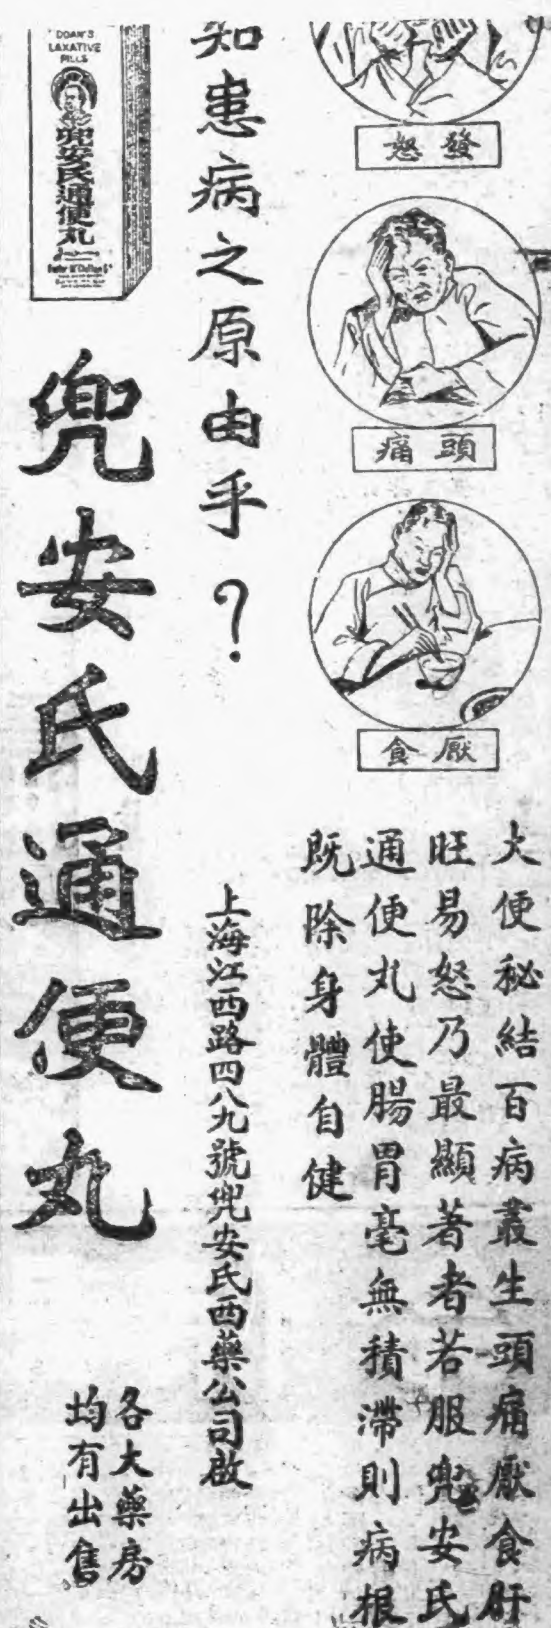 發怒
頭痛
厭食
大便秘結百病叢生頭痛厭食肝
旺易怒乃最顯著者若服兜安氏
通便丸使腸胃毫無積滯則病根
既除身體自健
知患病之原由乎?
上海江西路四八九號兜安氏西藥公司啟
DOAN'S
LAXATIVE
PILLS
兜安氏通便丸
兜安氏通便丸
各大藥房
均有出售